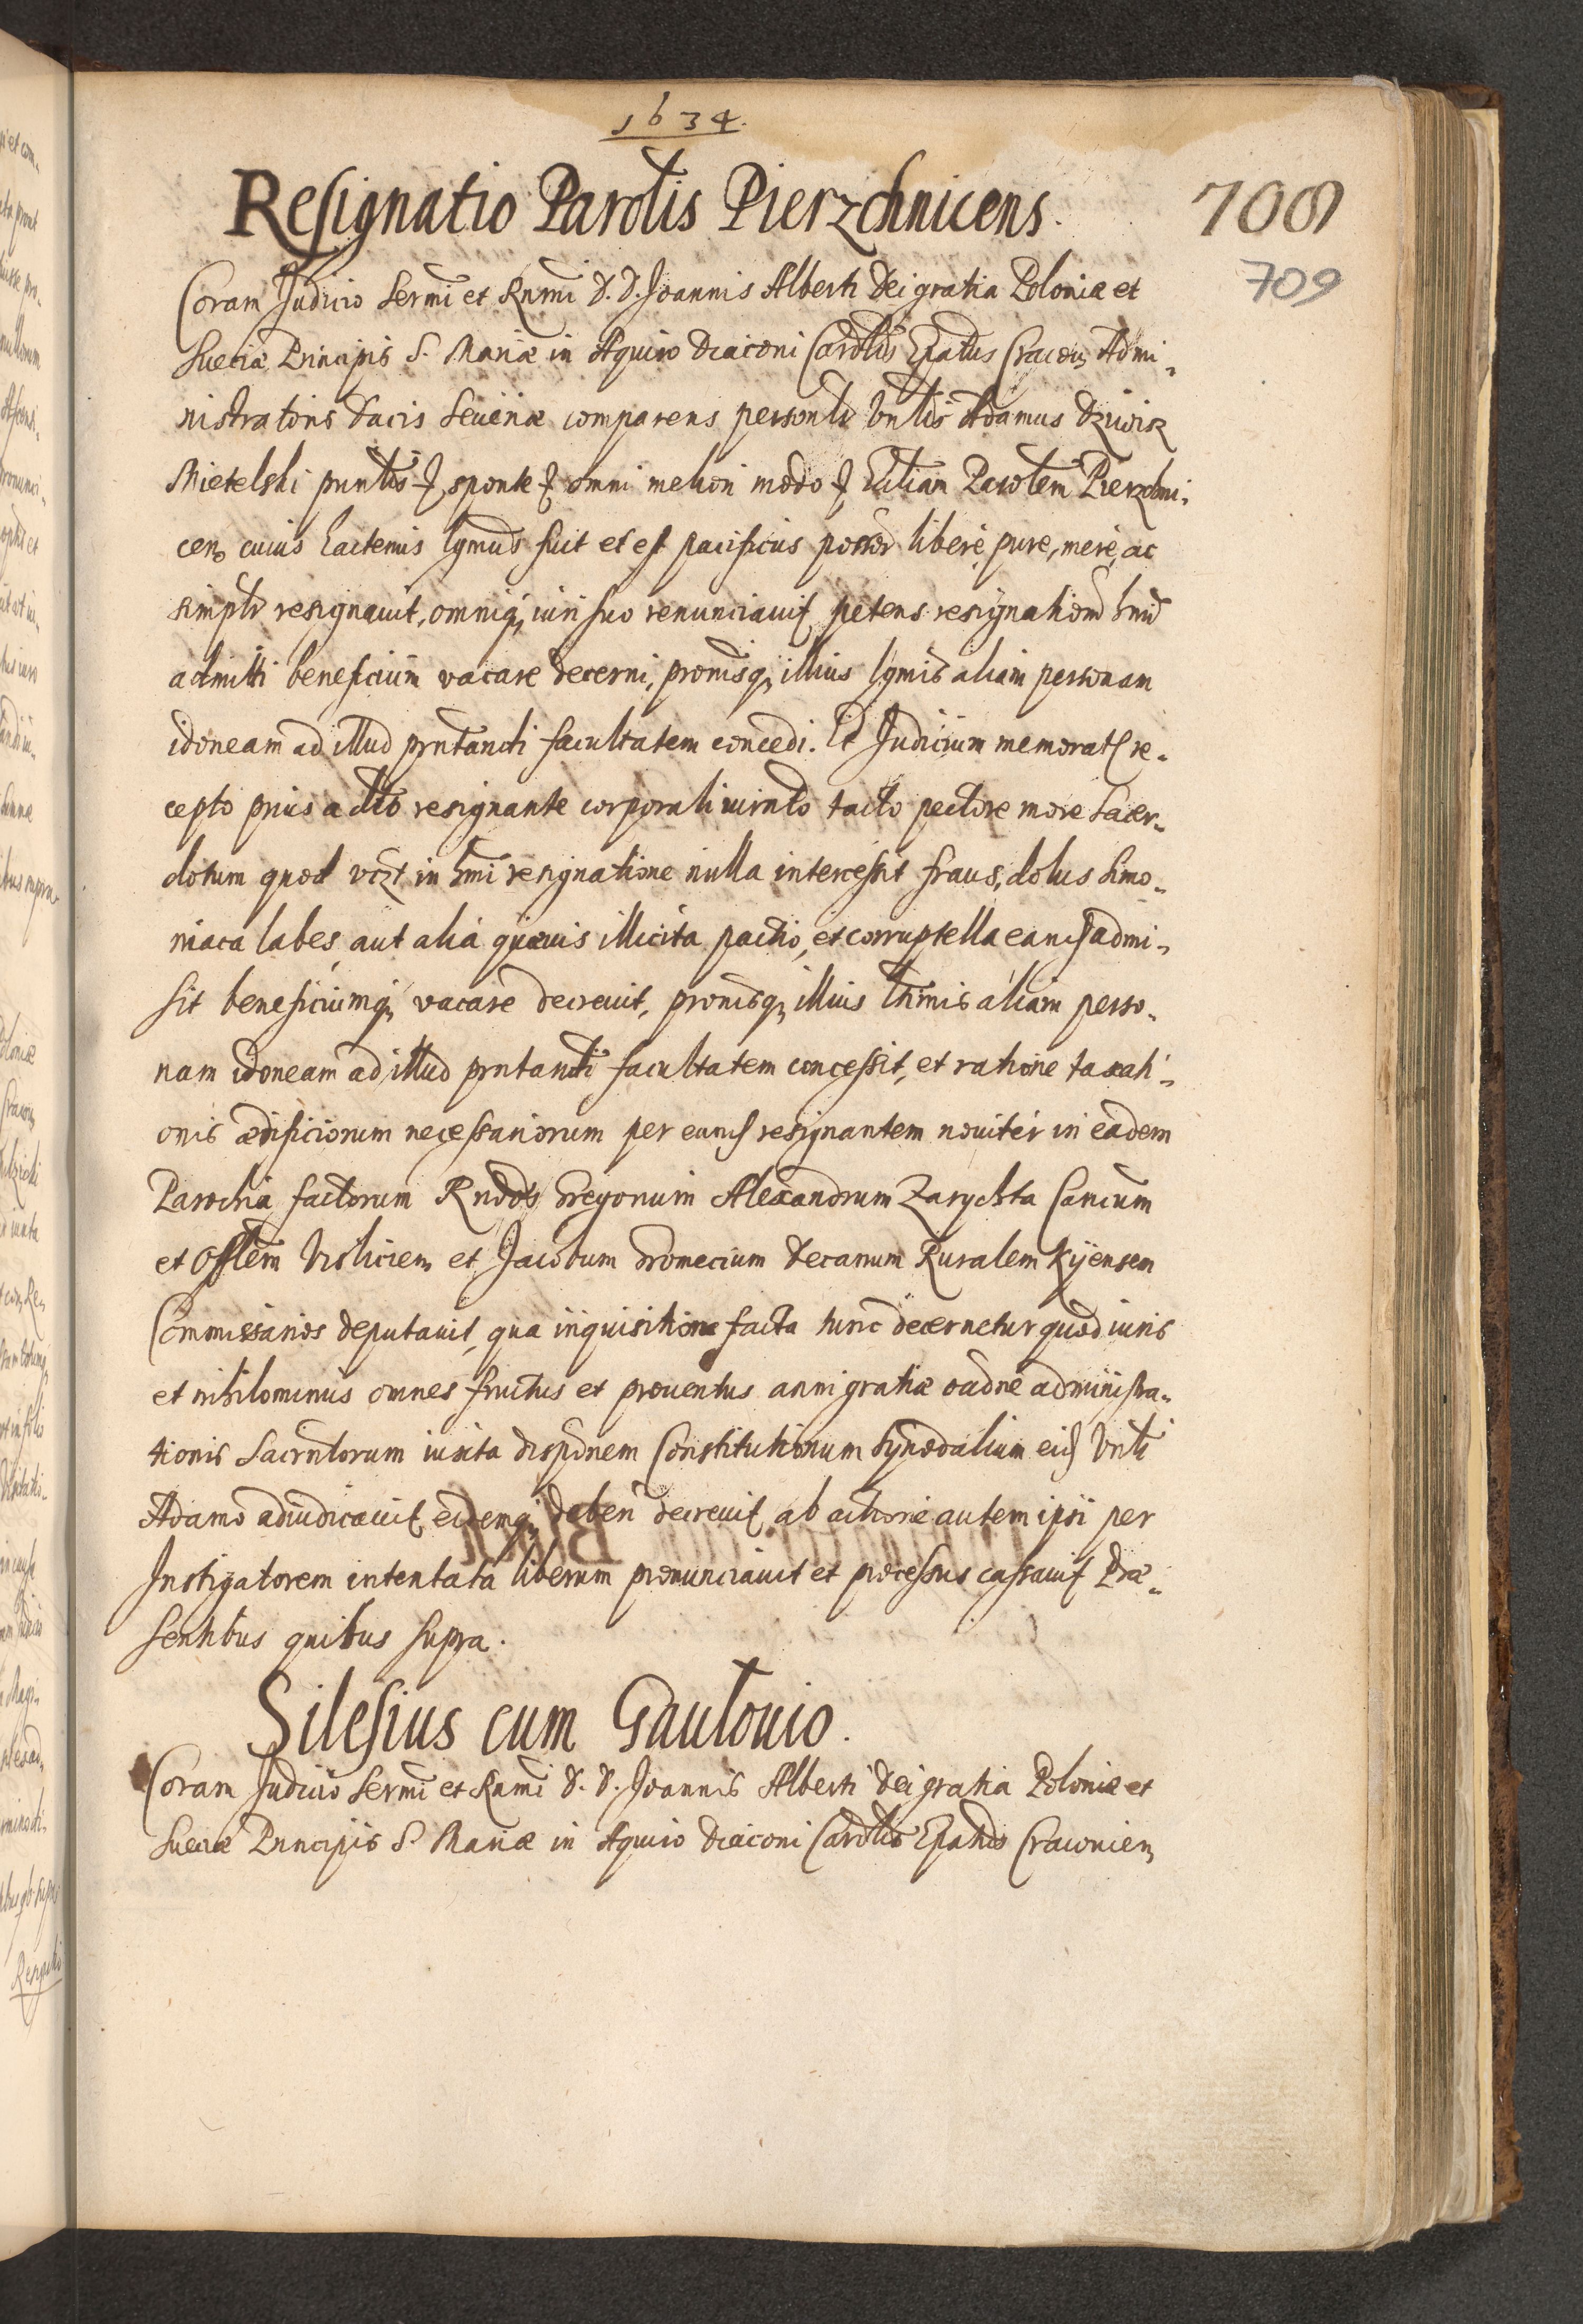 1634.
Resignatio Parolis Pierzchnicens.
708
709
Coram Judicio Sermi et Rnmi D. D. Joannis Alberti Dei gratia Poloniæ et
Sueciæ Principis S. Mariæ in Aquiro Diaconi Cardlis Epatus Cracou Admi-
nistratoris Ducis Seueriæ comparens personlr Vnlis Adamus
Mietelski pnntis sponte omni meliori modo Eccliam Parolem Pierzchni-
cen cuius hactenus lgmus fuit et est pacificus possor libere, pure, mere, ac
simplr resignauit, omniq iuri suo renunciauit, petens resignationem hmoi
admitti beneficium vacare decerni, pronisq illius lgmis aliam personam
idoneam ad illud prntandi facultatem concedi. Et Judicium memorat re-
cepto prius a dto resignante corporali iurnto tacto pectore more Sacer-
dotum quod vizt in hmoi resignatione nulla intercessit fraus, dolus Simo-
niaca labes, aut alia quæuis illicita pactio, et corruptella eand admi-
sit beneficiumq vacare decreuit, pronisq illius lgmis aliam perso-
nam idoneam ad illud prntandi facultatem concessit, et ratione taxati-
onis ædificiorum necessariorum per eund resignantem nouiter in eadem
Parochia factorum Rndos Gregorium Alexandrum Zarychta Cancum
et Offlem Visliciem et Jacobum Gromecium Decanum Ruralem Kyensem
Commissarios deputauit, qua inquisitione facta tunc decernetur quod iuris
et nihilominus omnes fructus et prouentus anni gratiæ oadne administra-
tionis Sacrntorum iuxta dispnem Constitutionum Synodalium eid Vnli
Adamo adiudicauit eidemq deberi decreuit, ab actione autem ipsi per
Instigatorem intentata liberum pronunciauit et processus cassauit Præ-
sentibus quibus supra.
Silesius cum Gautouio.
Coram Judicio Sermi et Rnmi D. D. Joannis Alberti Dei gratia Poloniæ et
Sueciæ Principis S. Mariæ in Aquiro Diaconi Cardlis Epatus Cracouien